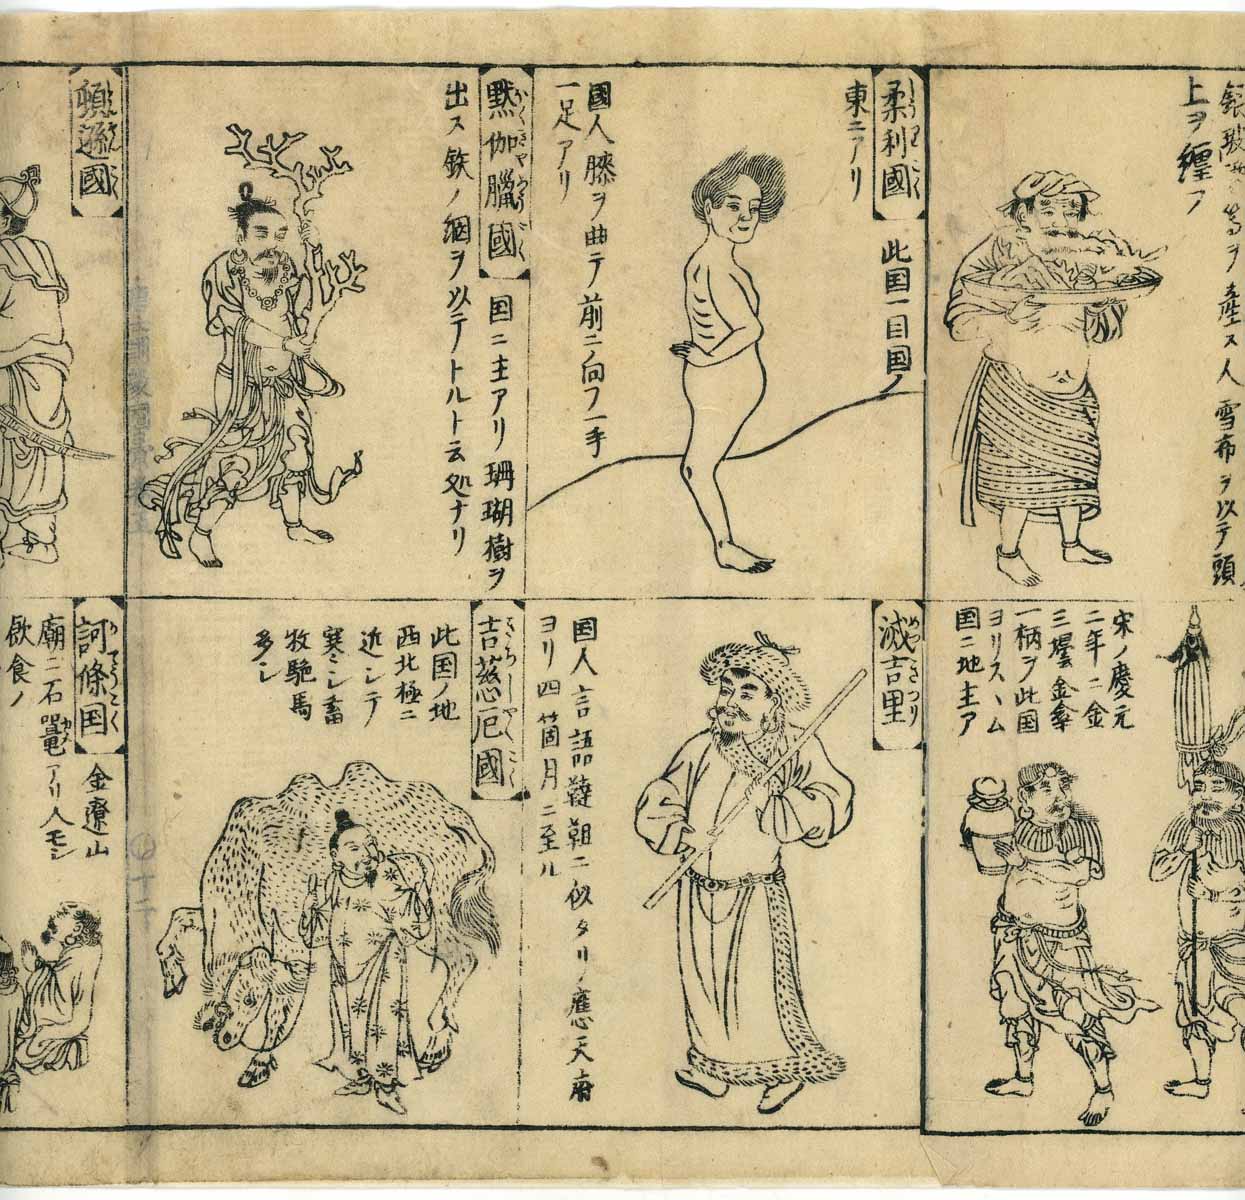 上ヲ纏フ
等ヲ産ス人雪布ヲ以テ頭
柔利國
此国一目国ノ
東ニアリ
國人膝ヲ曲テ前ニ向フ一手
一足アリ
默伽臘國
国ニ主アリ珊瑚樹ヲ
出ス鉄ノ網ヲ以テトルト云処ナリ
頓遜國
宋ノ慶元
二年ニ金
三壜金傘
一柄ヲ此国
ヨリスヽム
国ニ地主ア
滅吉里
国人言語韃靼ニ似タリ應天府
ヨリ四箇月ニ至ル
吉慈厄國
此国ノ地
西北極ニ
近シテ
寒シ畜
牧駞馬
多シ
訶條国
金遼山
廟ニ石鼉アリ人モシ
飲食ノ